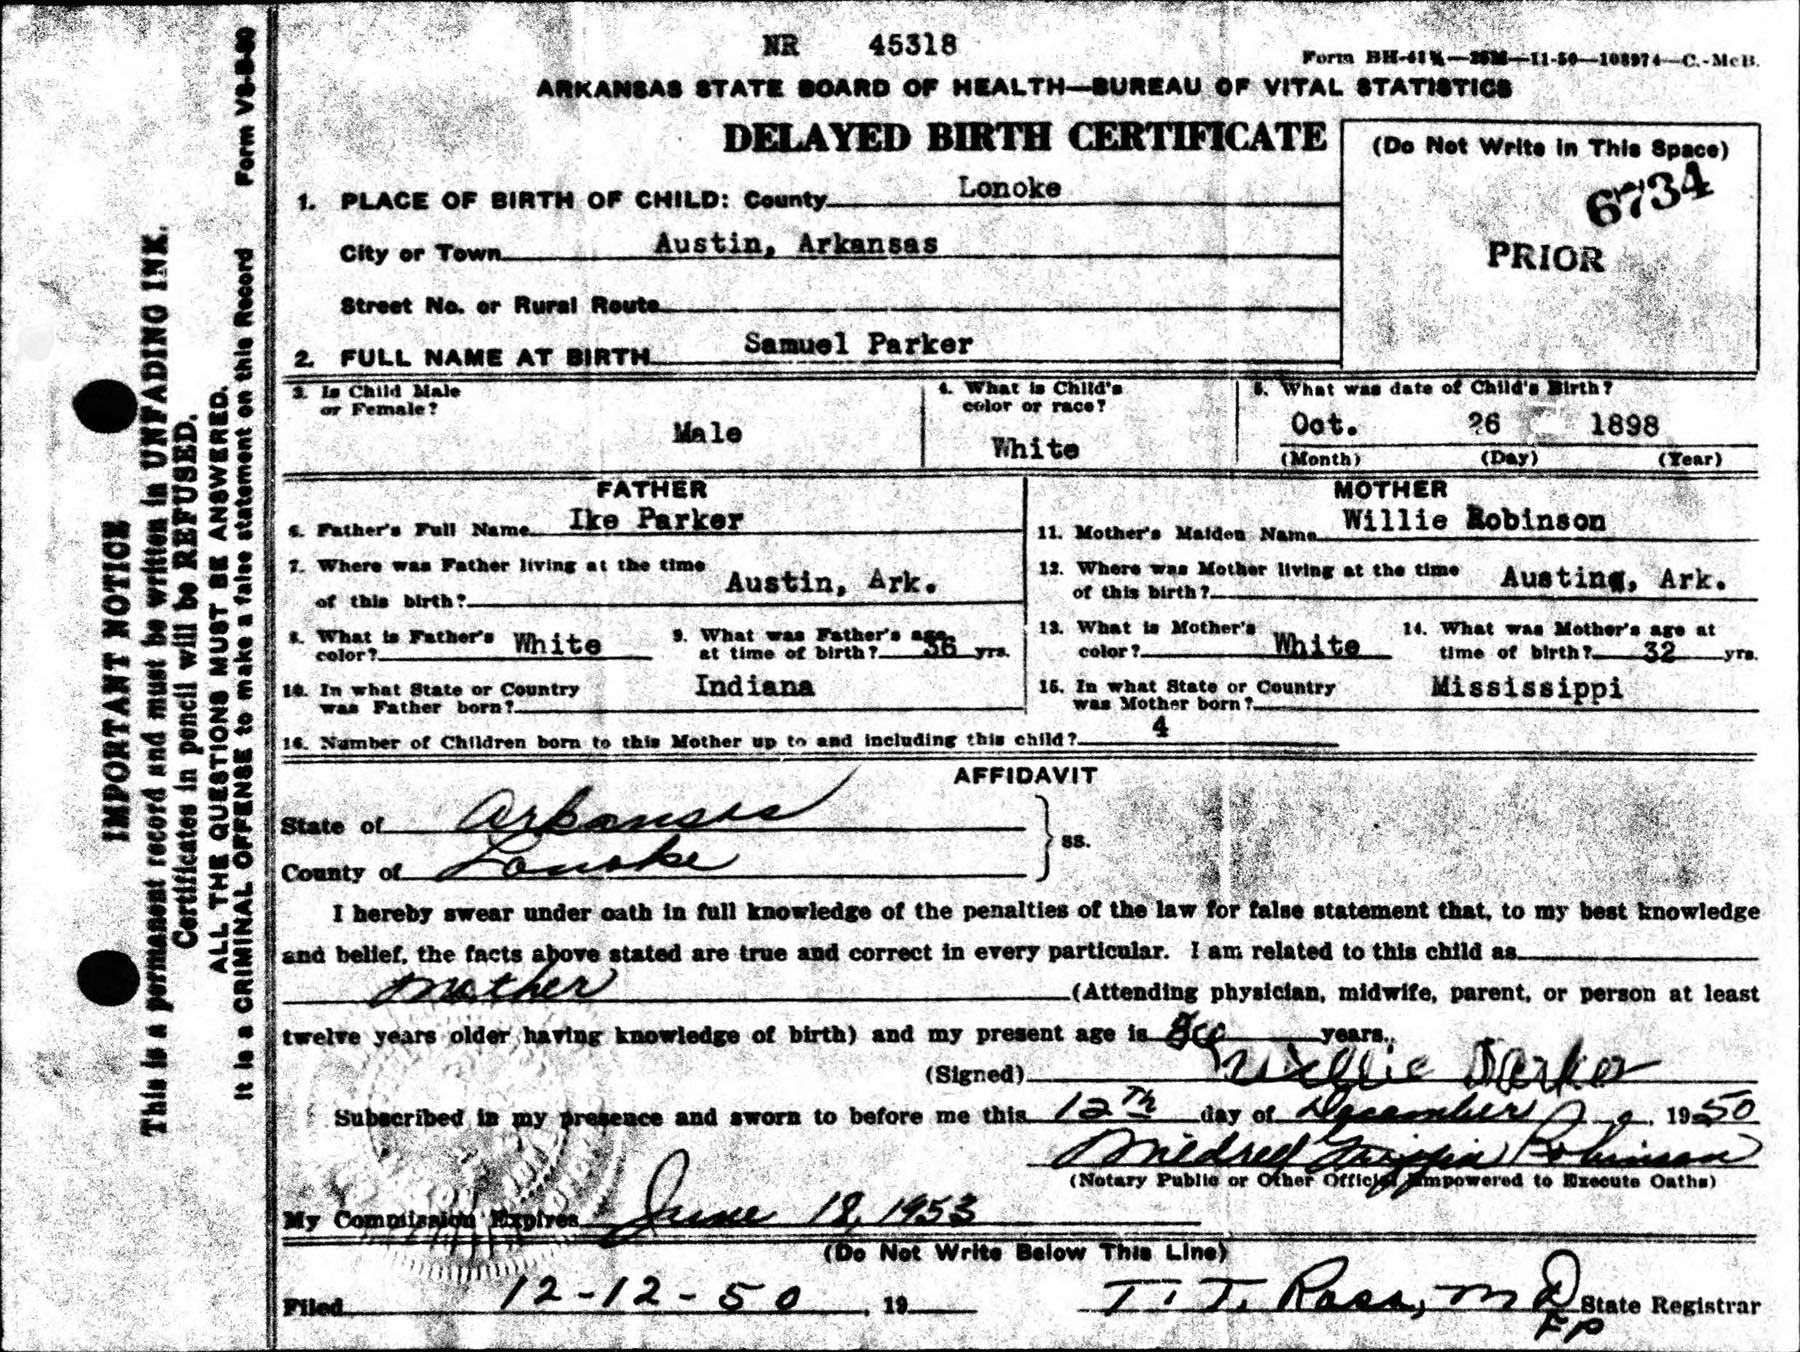 NR 45318
Form BH-41½—25M—11-50—108974—C.-McB.
ARKANSAS STATE BOARD OF HEALTH—BUREAU OF VITAL STATISTICS
DELAYED BIRTH CERTIFICATE
(Do Not Write in This Space)
6734
PRIOR
1. PLACE OF BIRTH OF CHILD: County Lonoke
City or Town Austin, Arkansas
Street No. or Rural Route
2. FULL NAME AT BIRTH Samuel Parker
3. Is Child Male or Female? Male
4. What is Child's color or race? White
5. What was date of Child's Birth?
Oct. 26 1898
(Month) (Day) (Year)
FATHER
6. Father's Full Name Ike Parker
7. Where was Father living at the time
of this birth? Austin, Ark.
8. What is Father's color? White
9. What was Father's age at time of birth? 36 yrs.
10. In what State or Country was Father born? Indiana
MOTHER
11. Mother's Maiden Name Willie Robinson
12. Where was Mother living at the time
of this birth? Austing, Ark.
13. What is Mother's color? White
14. What was Mother's age at time of birth? 32 yrs.
15. In what State or Country was Mother born? Mississippi
16. Number of Children born to this Mother up to and including this child? 4
AFFIDAVIT
State of Arkansas
County of Lonoke
ss.
I hereby swear under oath in full knowledge of the penalties of the law for false statement that, to my best knowledge
and belief, the facts above stated are true and correct in every particular. I am related to this child as
mother (Attending physician, midwife, parent, or person at least
twelve years older having knowledge of birth) and my present age is years.
(Signed) Willie Parker
Subscribed in my presence and sworn to before me this 12th day of December, 1950
Mildred Griffin Robinson
(Notary Public or Other Official Empowered to Execute Oaths)
My Commission Expires June 18, 1953
(Do Not Write Below This Line)
Filed 12-12-50, 19 T. T. Ross, MD State Registrar
FP
IMPORTANT NOTICE
This is a permanent record and must be written in UNFADING INK.
Certificates in pencil will be REFUSED.
ALL THE QUESTIONS MUST BE ANSWERED.
It is a CRIMINAL OFFENSE to make a false statement on this Record Form VS-B-80